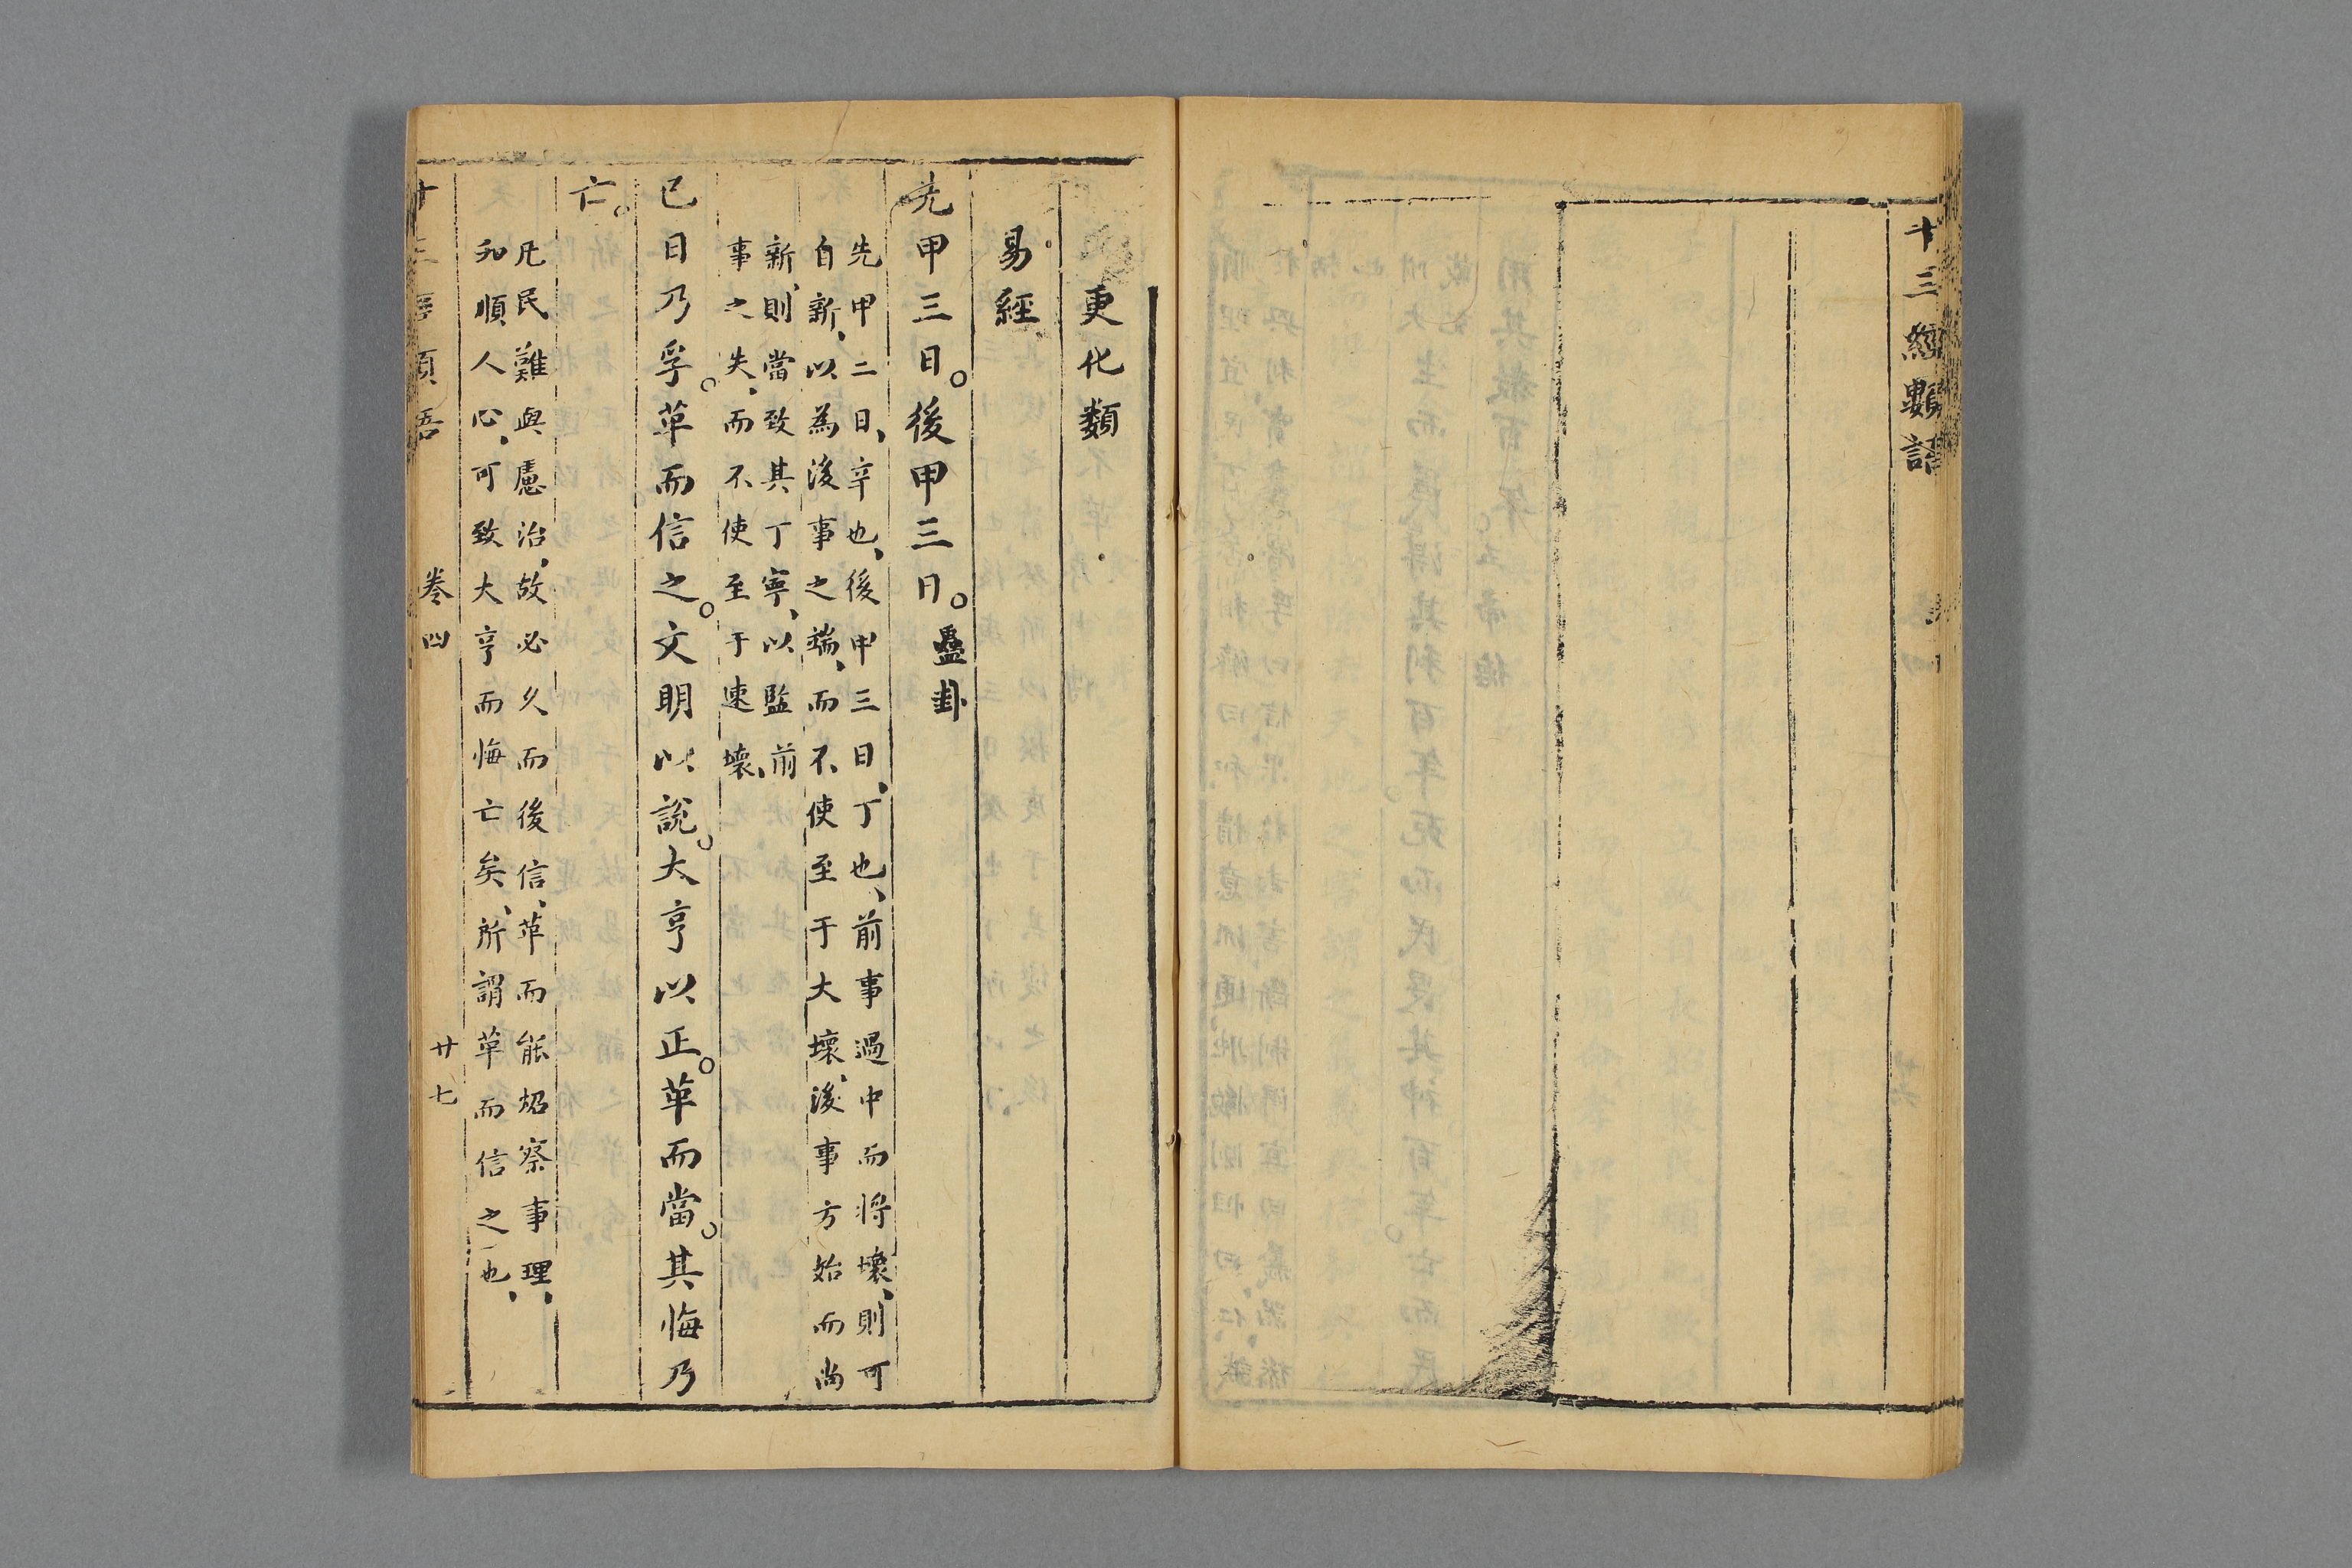 十三經類語
更化類
易經
先甲三日。後甲三日。蠱卦
先甲二日、辛也、後甲三日、丁也、前事過中而將壞、則可
自新、以為後事之端、而不使至于大壞、後事方始而尚
新、則當致其丁寧、以監前
事之失、而不使至于速壞、
已日乃孚。革而信之。文明以說。大亨以正。革而當。其悔乃
亡。
凡民難與慮治、故必久而後信、革而能炤察事理、
和順人心、可致大亨而悔亡矣、所謂革而信之也、
十三經類語 卷四 廿七